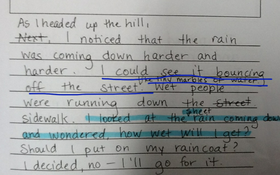 As I headed up the hill,
Next, I noticed that the rain
was coming down harder and
harder. I could see it bouncing
the tiny marbles of water
off the street. Wet people
were running down the street
street
sidewalk. I looked at the rain coming down
and wondered how wet will I get?
Should I put on my raincoat?
I decided, no - I'll go for it